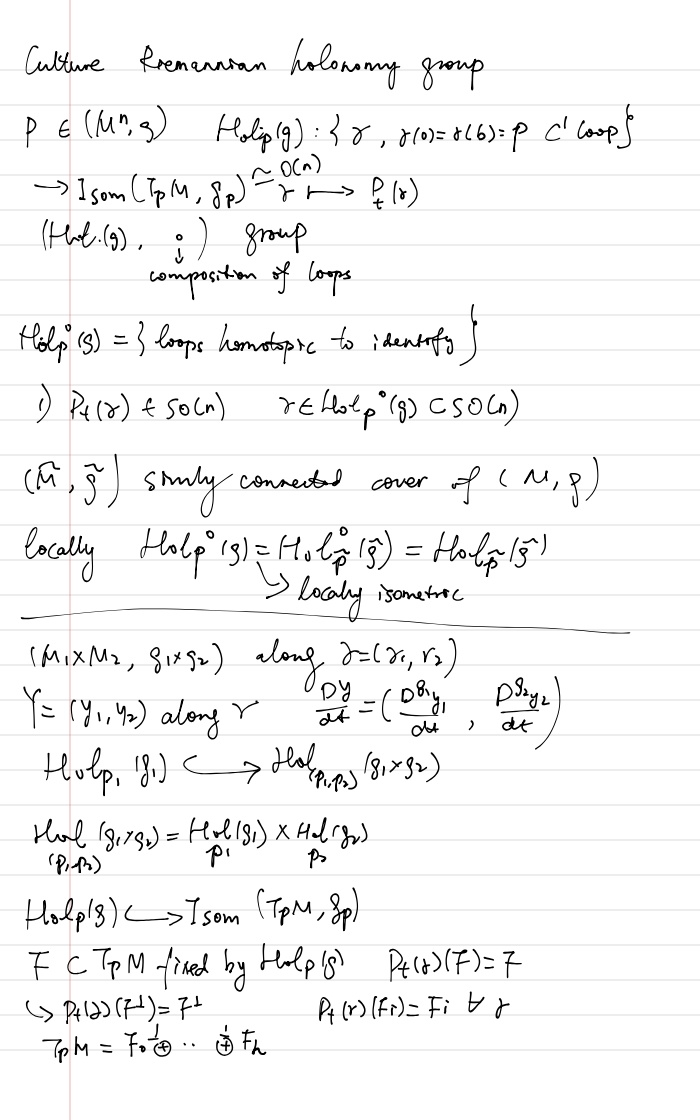 Culture Riemannian holonomy group
p ∈ (Mⁿ, g) Holp(g) : { γ, γ(0) = γ(b) = p C¹ loop }
→ Isom(TpM, gp) ≃ O(n) γ ↦ Pt(γ)
(Hol.(g), ∘) group
↓ composition of loops
Holp°(g) = { loops homotopic to identity }
1) Pt(γ) ∈ SO(n) γ ∈ Holp°(g) ⊂ SO(n)
(M̃, g̃) simly connected cover of (M, g)
locally Holp°(g) = Hol°p̃(g̃) = Holp̃(g̃)
↳ locally isometric
(M₁×M₂, g₁×g₂) along γ = (γ₁, γ₂)
Y = (y₁, y₂) along γ DY/dt = (D^g₁y₁/dt, D^g₂y₂/dt)
Holp₁(g₁) ↪ Hol(p₁,p₂)(g₁×g₂)
Hol(p₁,p₂)(g₁×g₂) = Holp₁(g₁) × Holp₂(g₂)
Holp(g) ↪ Isom (TpM, gp)
F ⊂ TpM fixed by Holp(g) Pt(γ)(F) = F
↪ Pt(γ)(F⊥) = F⊥ Pt(γ)(Fi) = Fi ∀ γ
TpM = F₀ ⊕⊥ ·· ⊕⊥ Fk